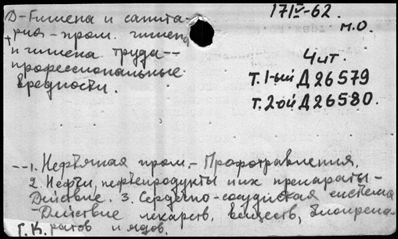 Д-Гигиена и санита-
рия - пром. гигиена
и гигиена труда --
профессиональные
вредности.
17IV-62.
М.О.
Чит.
Т.1-ый Д26579
Т.2-ой Д26580.
--1. Нефтяная пром. - Профотравления.
2. Нефти, нефтепродукты и их препараты -
Действие. 3. Сердечно-сосудистая система
- Действие лекарств, веществ, биопрепа-
ратов и ядов.
Г.К.